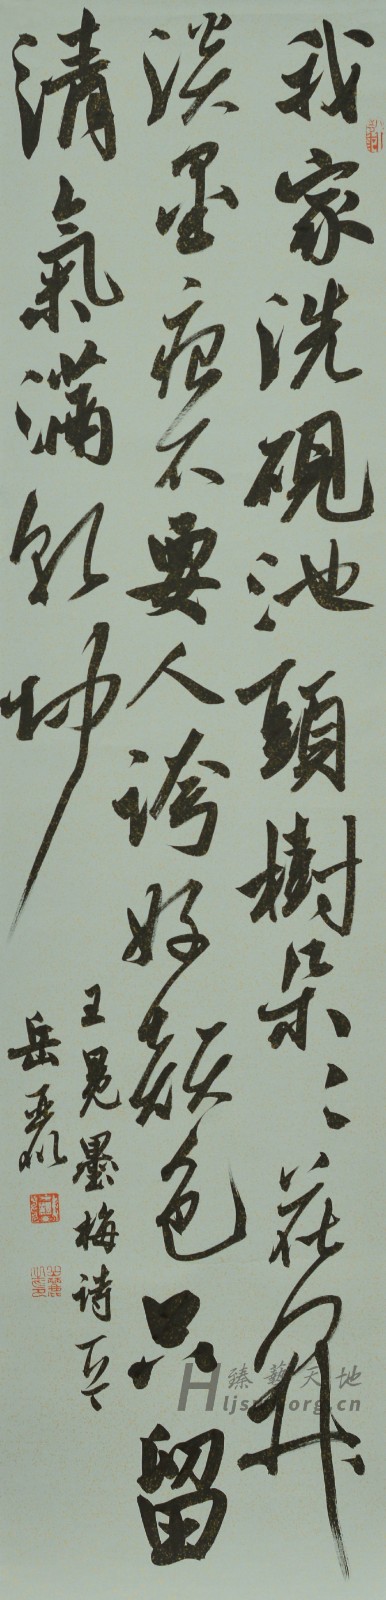 我家洗硯池頭樹朵〻花開
淡墨痕不要人誇好顏色只留
清氣滿乾坤
王冕墨梅詩一首
岳
臻藝天地
Hljszyy.org.cn